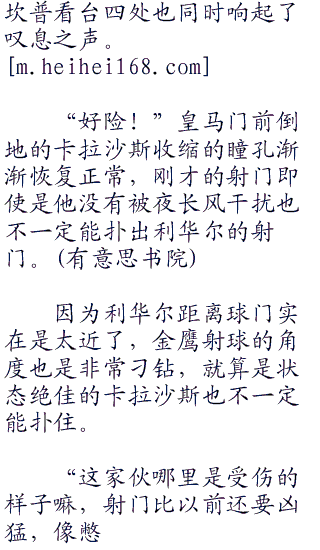 坎普看台四处也同时响起了
叹息之声。
[m.heihei168.com]
“好险！”皇马门前倒
地的卡拉沙斯收缩的瞳孔渐
渐恢复正常，刚才的射门即
使是他没有被夜长风干扰也
不一定能扑出利华尔的射
门。(有意思书院)
因为利华尔距离球门实
在是太近了，金鹰射球的角
度也是非常刁钻，就算是状
态绝佳的卡拉沙斯也不一定
能扑住。
“这家伙哪里是受伤的
样子嘛，射门比以前还要凶
猛，像憋